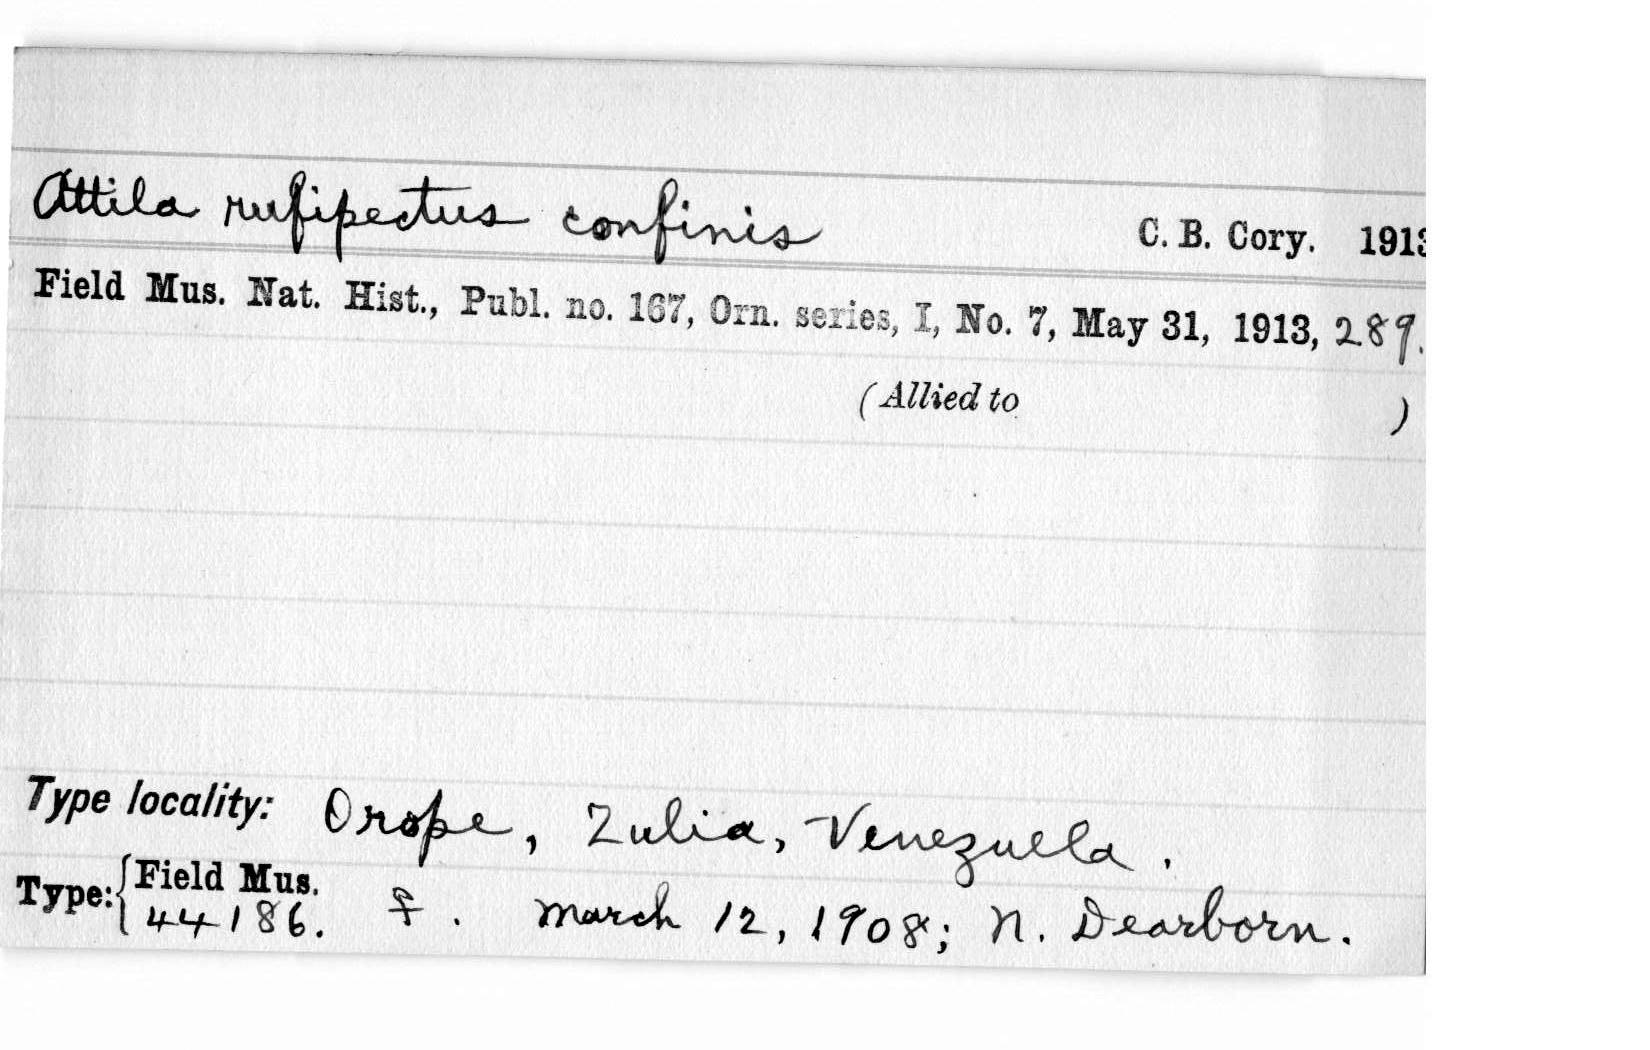 Attila rufipectus confinis C. B. Cory. 1913
Field Mus. Nat. Hist., Publ. no. 167, Orn. series, I, No. 7, May 31, 1913, 289.
(Allied to )
Type locality: Orope, Zulia, Venezuela.
Type: { Field Mus.
44186. ♀. March 12, 1908; N. Dearborn.